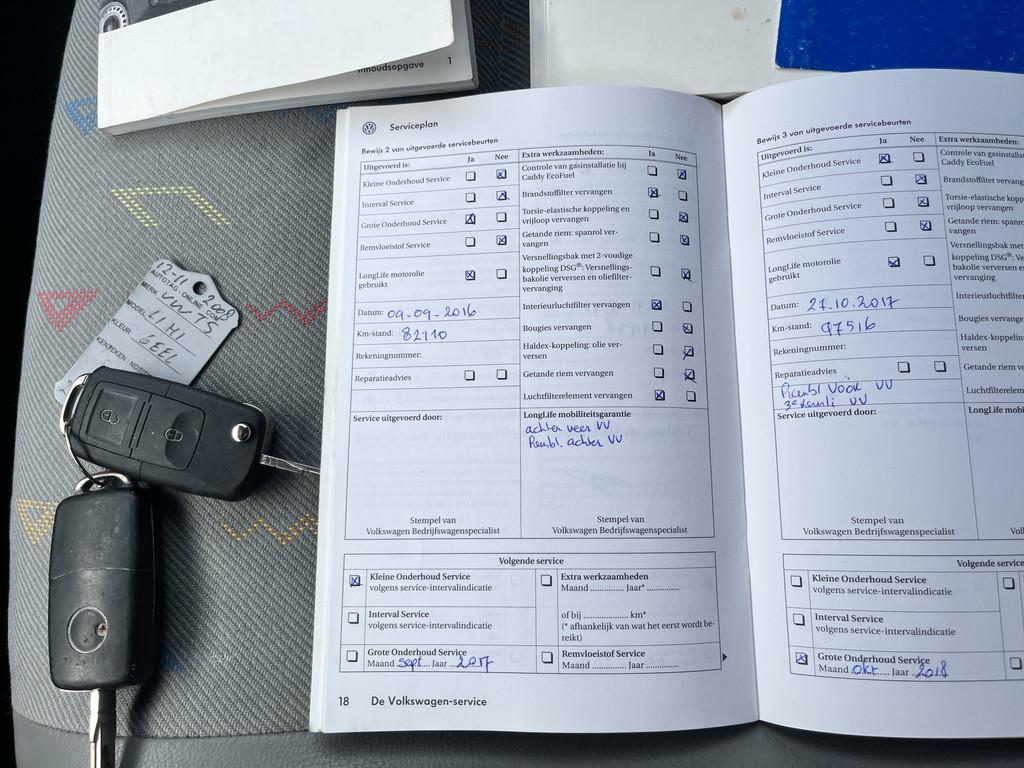 Inhoudsopgave 1
12-11 2008
AUTOTAG-ONLINE.COM
MERK VW'S
MODEL
KLEUR GEEL
KENTEKEN
Serviceplan
Bewijs 2 van uitgevoerde servicebeurten
Uitgevoerd is: Ja Nee
Kleine Onderhoud Service
Interval Service
Grote Onderhoud Service
Remvloeistof Service
LongLife motorolie
gebruikt
Datum: 09-09-2016
Km-stand: 82110
Rekeningnummer:
Reparatieadvies
Service uitgevoerd door:
Stempel van
Volkswagen Bedrijfswagenspecialist
Extra werkzaamheden: Ja Nee
Controle van gasinstallatie bij
Caddy EcoFuel
Brandstoffilter vervangen
Torsie-elastische koppeling en
vrijloop vervangen
Getande riem: spanrol ver-
vangen
Versnellingsbak met 2-voudige
koppeling DSG®: Versnellings-
bakolie verversen en oliefilter-
vervanging
Interieurluchtfilter vervangen
Bougies vervangen
Haldex-koppeling: olie ver-
versen
Getande riem vervangen
Luchtfilterelement vervangen
LongLife mobiliteitsgarantie
achter veer VV
Rembl. achter VV
Stempel van
Volkswagen Bedrijfswagenspecialist
Volgende service
Kleine Onderhoud Service
volgens service-intervalindicatie
Interval Service
volgens service-intervalindicatie
Grote Onderhoud Service
Maand sept Jaar 2017
Extra werkzaamheden
Maand .............. Jaar* ..............
of bij ....................... km*
(* afhankelijk van wat het eerst wordt be-
reikt)
Remvloeistof Service
Maand .............. Jaar ..............
18 De Volkswagen-service
Bewijs 3 van uitgevoerde servicebeurten
Uitgevoerd is: Ja Nee
Kleine Onderhoud Service
Interval Service
Grote Onderhoud Service
Remvloeistof Service
LongLife motorolie
gebruikt
Datum: 27.10.2017
Km-stand: 97516
Rekeningnummer:
Reparatieadvies
Rembl voor VV
VV
Service uitgevoerd door:
Stempel van
Volkswagen Bedrijfswagenspecialist
Extra werkzaamheden:
Controle van gasinstall
Caddy EcoFuel
Brandstoffilter vervang
Torsie-elastische kopp
vrijloop vervangen
Getande riem: span
vangen
Versnellingsbak met
koppeling DSG®: Ver
bakolie verversen en
vervanging
Interieurluchtfilter
Bougies vervangen
Haldex-koppeling:
versen
Getande riem ve
Luchtfilterelem
LongLife mobil
Vol
Volgende service
Kleine Onderhoud Service
volgens service-intervalindicatie
Interval Service
volgens service-intervalindicatie
Grote Onderhoud Service
Maand okt Jaar 2018